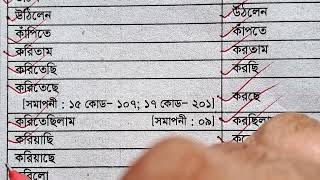 উঠিলেন উঠলেন
কাঁপিতে কাঁপতে
করিতাম করতাম
করিতেছি করছি
করিতেছে করছে
[সমাপনী : ১৫ কোড- ১০৭; ১৭ কোড- ২০১]
করিতেছিলাম [সমাপনী : ০৯] করছিলাম
করিয়াছি
করিয়াছে